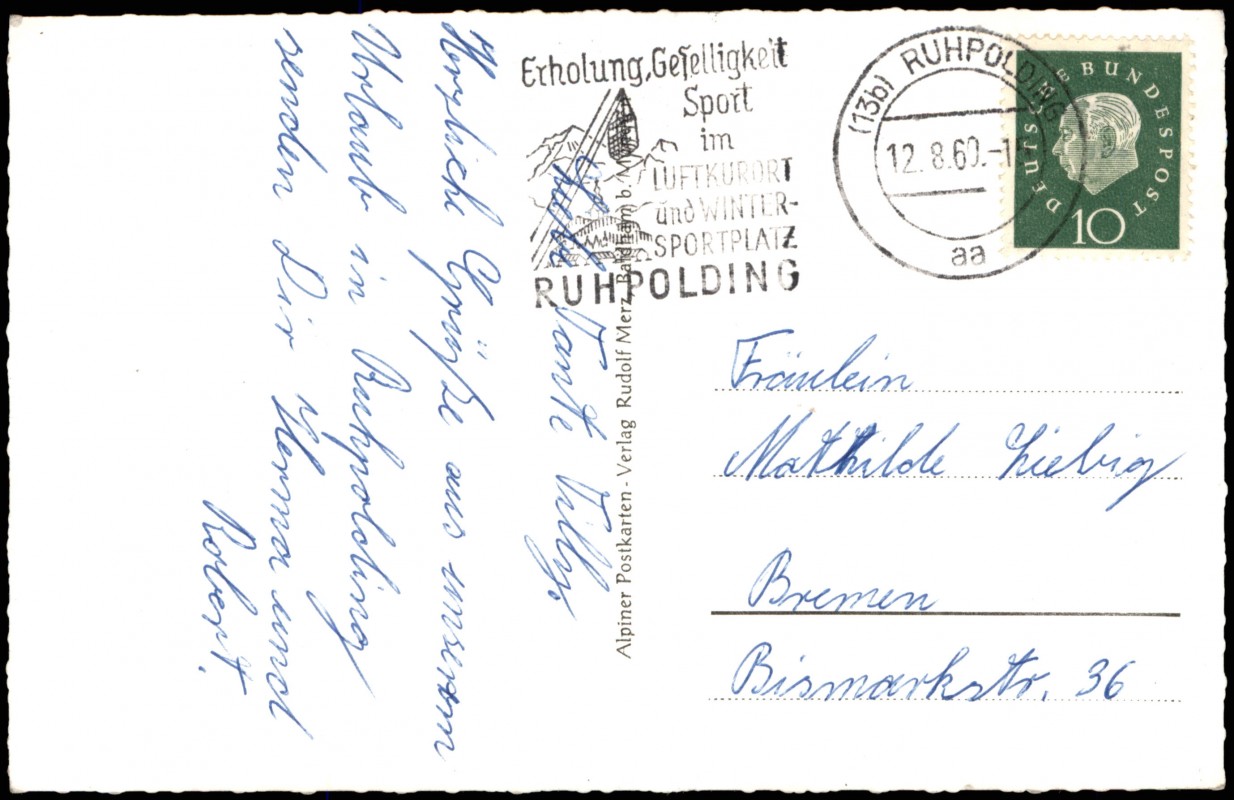 Erholung, Geselligkeit
Sport
im
LUFTKURORT
und WINTER-
SPORTPLATZ
RUHPOLDING
(13b) RUHPOLDING
12.8.60.-
aa
DEUTSCHE BUNDESPOST
10
Tante Tilly,
Herzliche Grüße aus unserem
Urlaub in Ruhpolding
senden Dir Herma und
Robert.
Alpiner Postkarten - Verlag Rudolf Merz, Baldham b.
Fräulein
Mathilde Liebig
Bremen
Bismarkstr. 36